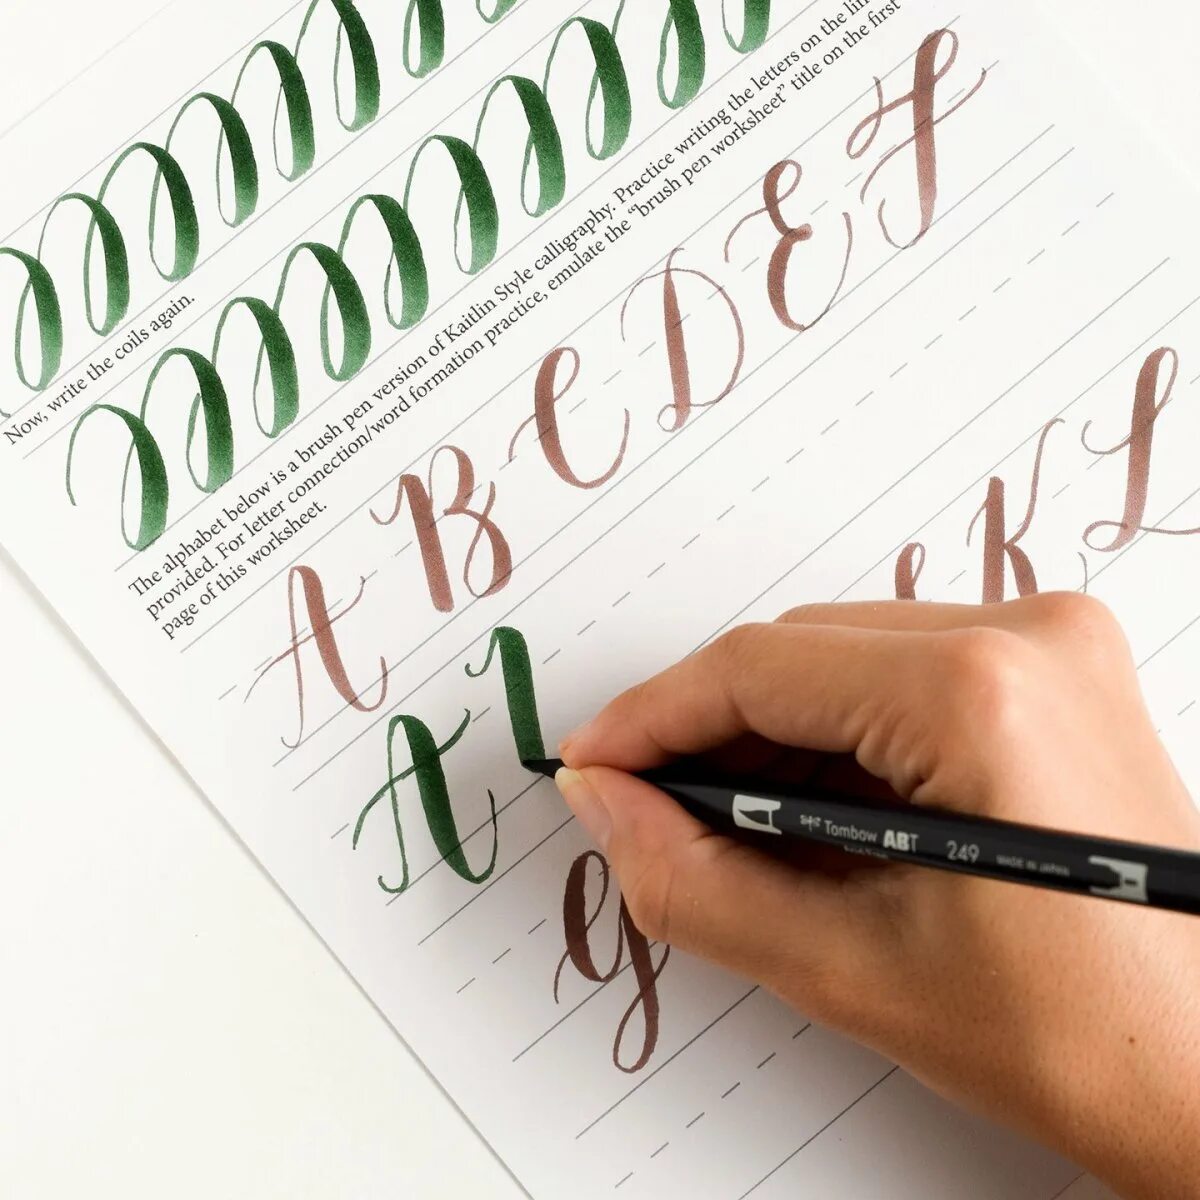 Now, write the coils again.
The alphabet below is a brush pen version of Kaitlin Style calligraphy. Practice writing the letters on the
provided. For letter connection/word formation practice, emulate the “brush pen worksheet” title on the first
page of this worksheet.
A B C D E F
A
K L
G
Tombow ABT 249 MADE IN JAPAN